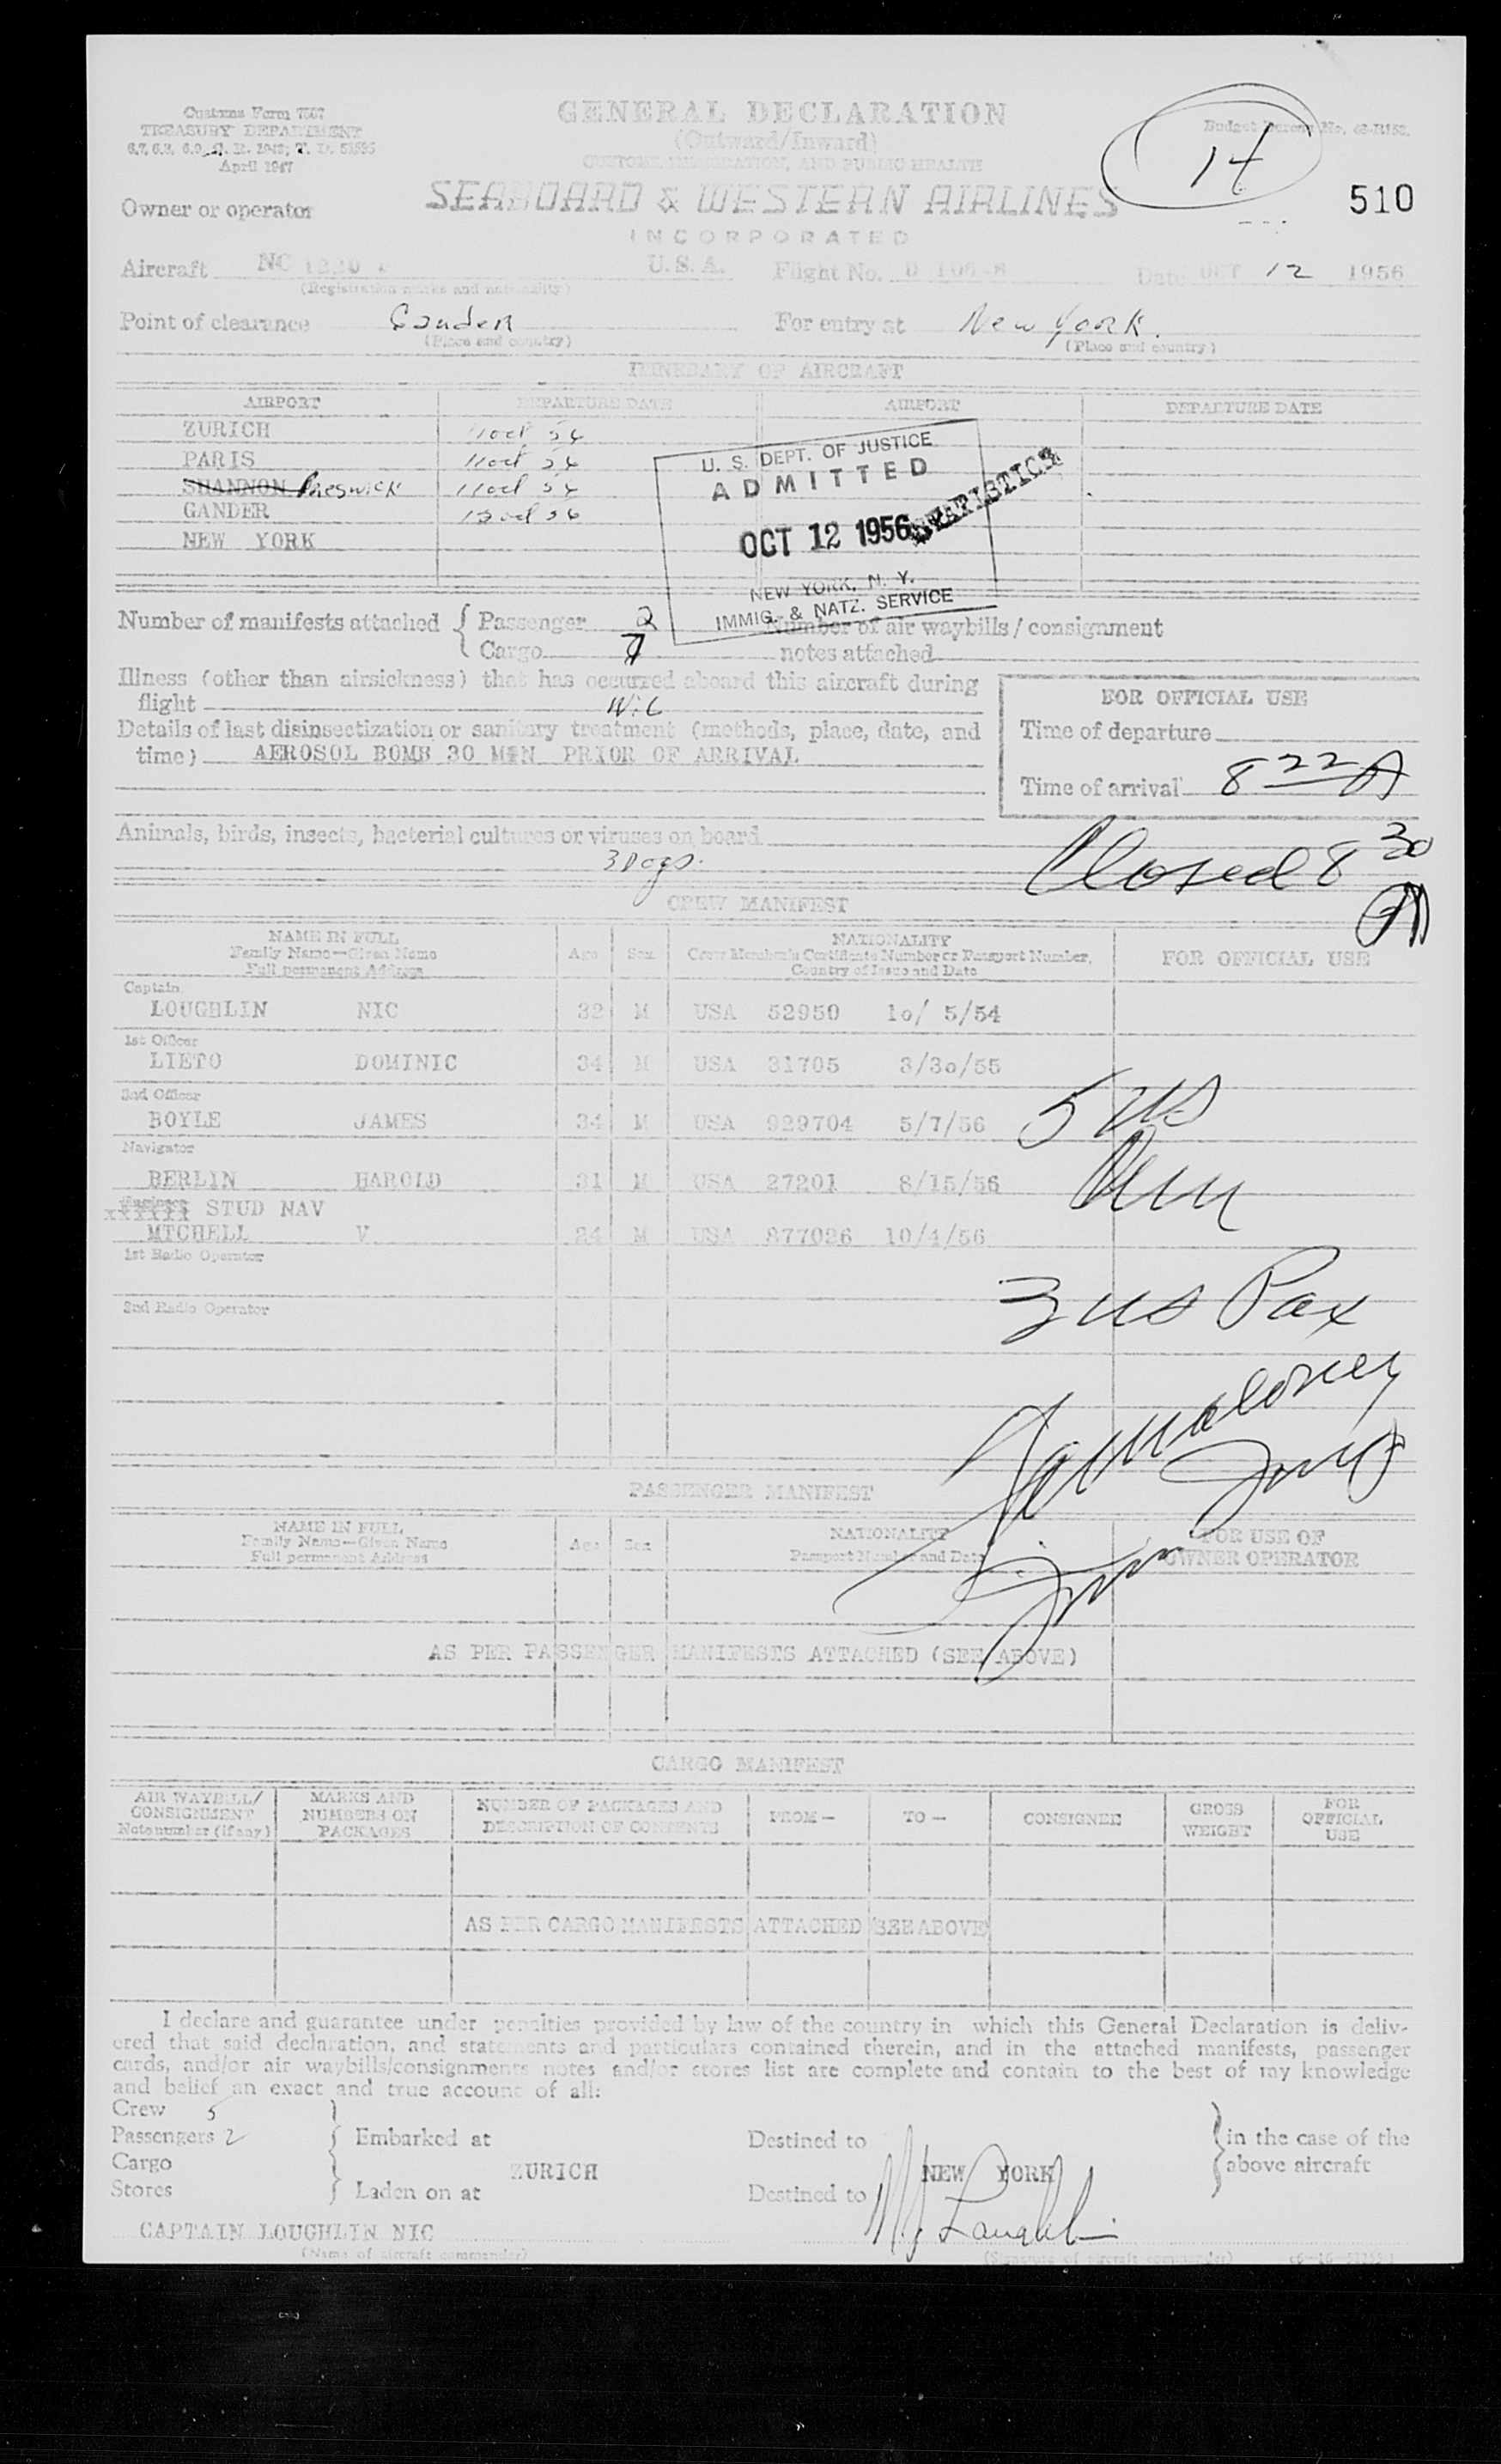 Customs Form 7507
TREASURY DEPARTMENT
April 1947
GENERAL DECLARATION
(Outward/Inward)
CUSTOMS, IMMIGRATION, AND PUBLIC HEALTH
Budget Bureau No.
14
510
Owner or operator SEABOARD & WESTERN AIRLINES
INCORPORATED
Aircraft NC U.S.A. Flight No. Date OCT 12 1956
(Registration marks and nationality)
Point of clearance Gander For entry at New York.
(Place and country) (Place and country)
ITINERARY OF AIRCRAFT
AIRPORT DEPARTURE DATE AIRPORT DEPARTURE DATE
ZURICH 11 oct 56
PARIS 11 oct 56
SHANNON Preswick 11 oct 56
GANDER 12 oct 56
NEW YORK
U. S. DEPT. OF JUSTICE
ADMITTED
OCT 12 1956
STATISTICS
NEW YORK, N. Y.
IMMIG. & NATZ. SERVICE
Number of manifests attached { Passenger 2 Number of air waybills / consignment
Cargo 7 notes attached
Illness (other than airsickness) that has occurred aboard this aircraft during
flight
Details of last disinsectization or sanitary treatment (methods, place, date, and
time) AEROSOL BOMB 30 MIN PRIOR OF ARRIVAL
FOR OFFICIAL USE
Time of departure
Time of arrival 8 22 A
Animals, birds, insects, bacterial cultures or viruses on board
3 Dogs.
Closed 8 30
CREW MANIFEST
NAME IN FULL
Family Name—Given Name
Full permanent Address
Age Sex
NATIONALITY
Crew Member's Certificate Number or Passport Number,
Country of Issue and Date
FOR OFFICIAL USE
Captain
LOUGHLIN NIC 32 M USA 52950 10/ 5/54
1st Officer
LIETO DOMINIC 34 M USA 31705 3/30/55
2nd Officer
BOYLE JAMES 34 M USA 929704 5/7/56
5 US
Navigator
BERLIN HAROLD 31 M USA 27201 8/15/56
STUD NAV
MTCHELL V 24 M USA 877026 10/4/56
1st Radio Operator
2nd Radio Operator
3 US Pax
PASSENGER MANIFEST
NAME IN FULL
Family Name—Given Name
Full permanent Address
Age Sex
NATIONALITY
Passport Number and Date
FOR USE OF
OWNER OPERATOR
AS PER PASSENGER MANIFESTS ATTACHED (SEE ABOVE)
CARGO MANIFEST
AIR WAYBILL/
CONSIGNMENT
Note number (if any)
MARKS AND
NUMBERS ON
PACKAGES
NUMBER OF PACKAGES AND
DESCRIPTION OF CONTENTS
FROM —
TO —
CONSIGNEE
GROSS
WEIGHT
FOR
OFFICIAL
USE
AS PER CARGO MANIFESTS ATTACHED SEE ABOVE
I declare and guarantee under penalties provided by law of the country in which this General Declaration is deliv-
ered that said declaration, and statements and particulars contained therein, and in the attached manifests, passenger
cards, and/or air waybills/consignments notes and/or stores list are complete and contain to the best of my knowledge
and belief an exact and true account of all:
Crew 5
Passengers 2 Embarked at Destined to in the case of the
Cargo ZURICH NEW YORK above aircraft
Stores Laden on at Destined to
CAPTAIN LOUGHLIN NIC
(Name of aircraft commander) (Signature of aircraft commander)